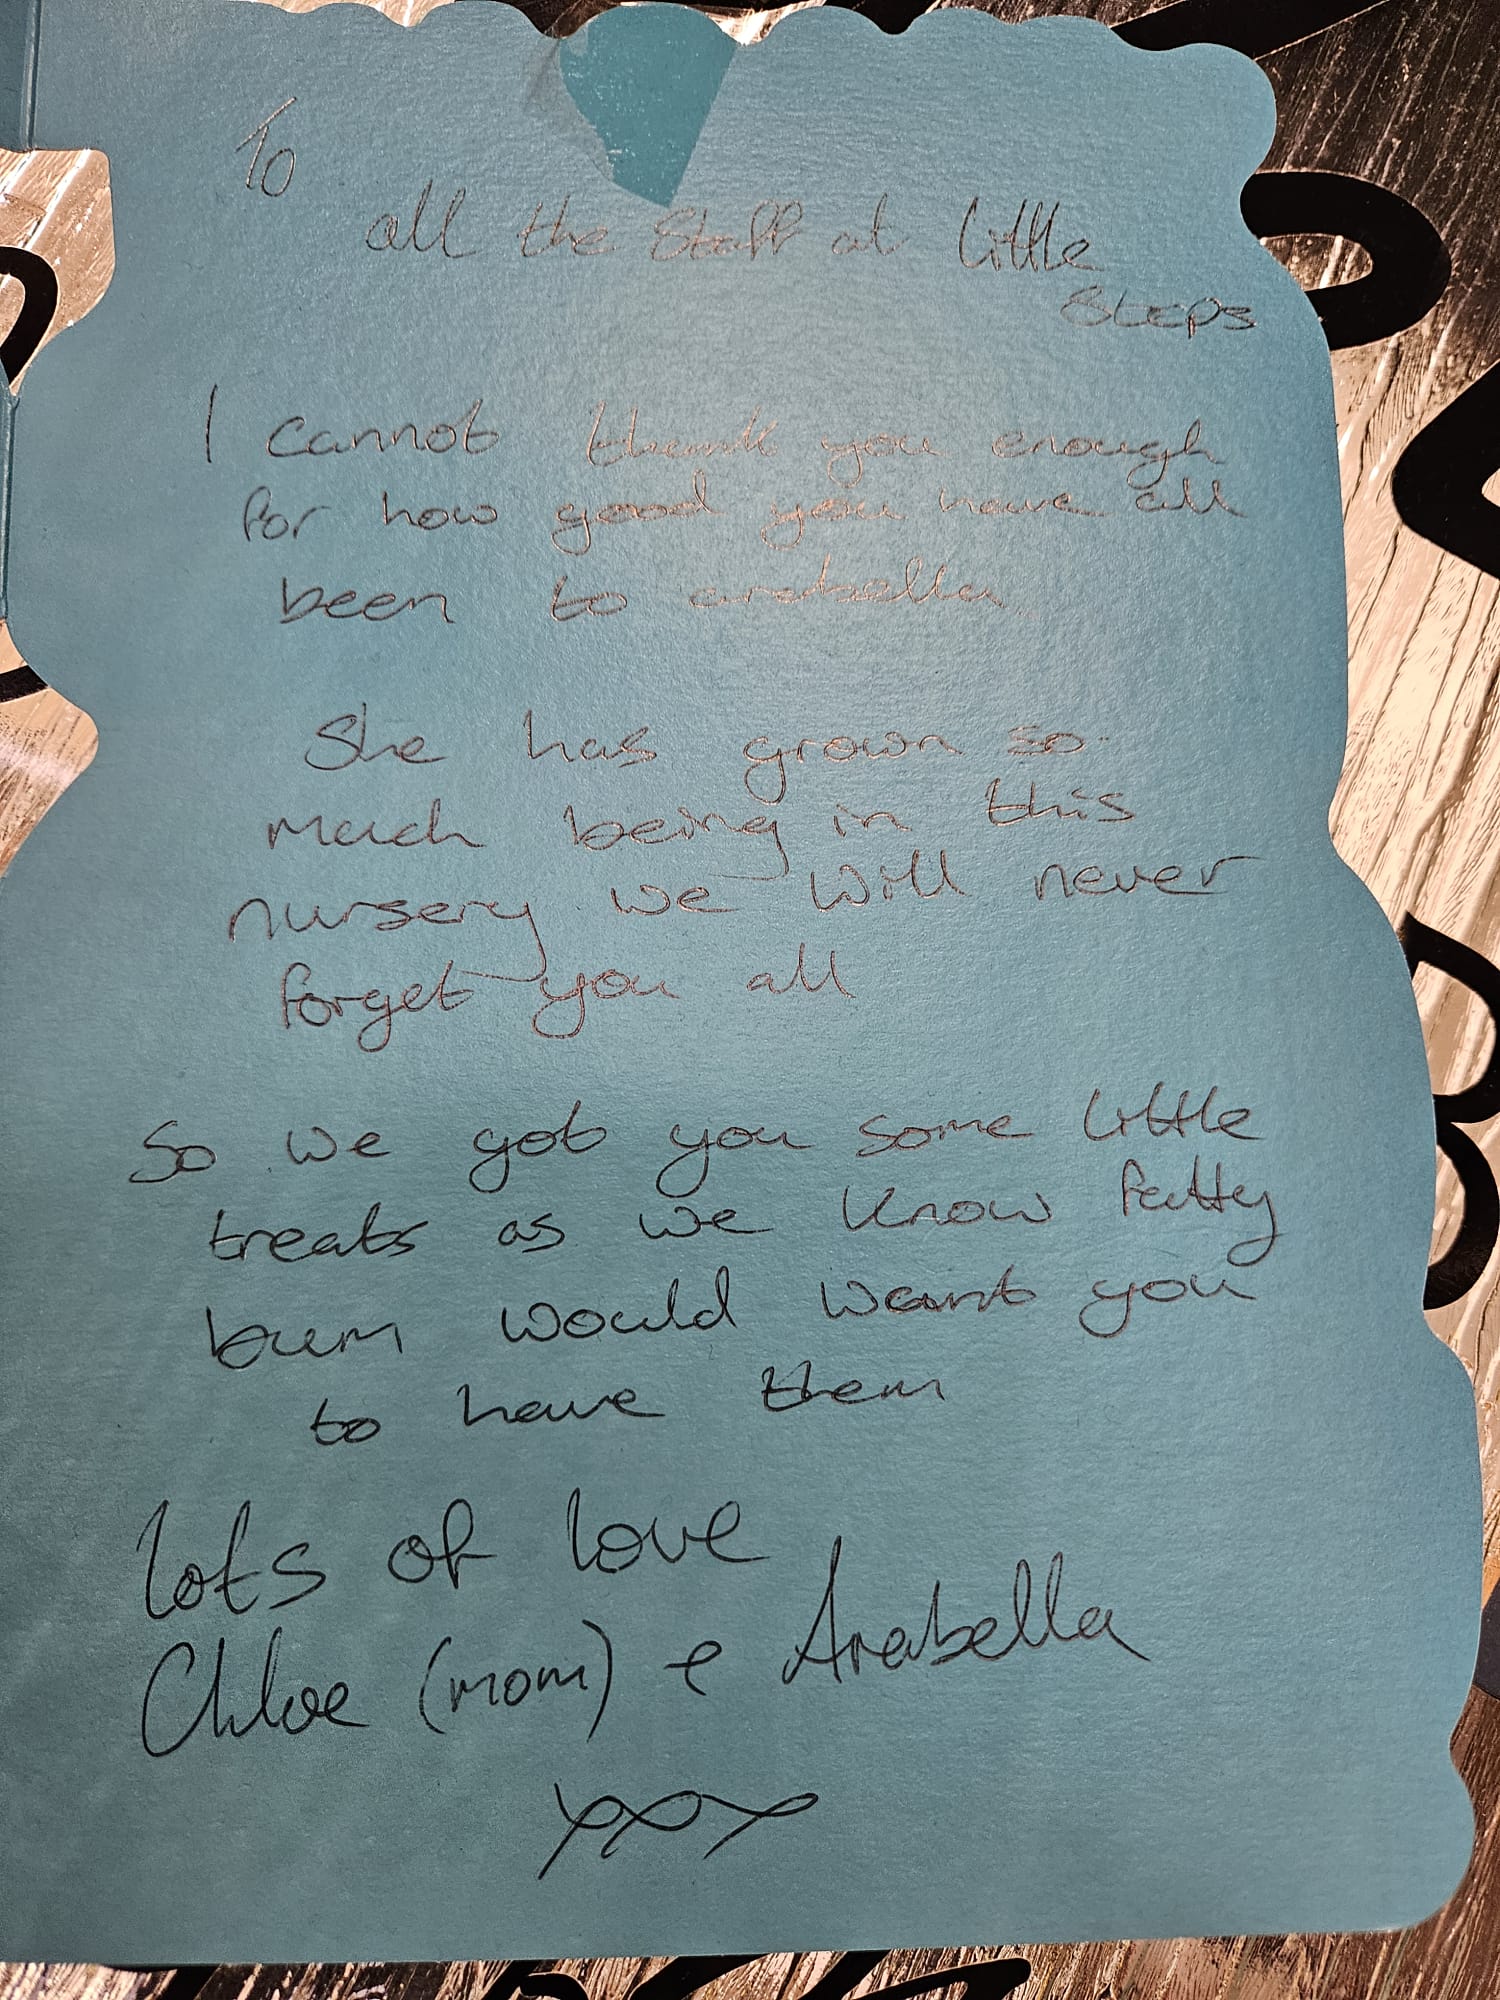 To
all the staff at little
steps
I cannot thank you enough
for how good you have all
been to arabella
She has grown so
much being in this
nursery we will never
forget you all
So we got you some little
treats as we know fatty
bum would want you
to have them
lots of love
Chloe (mom) & Arabella
xxx